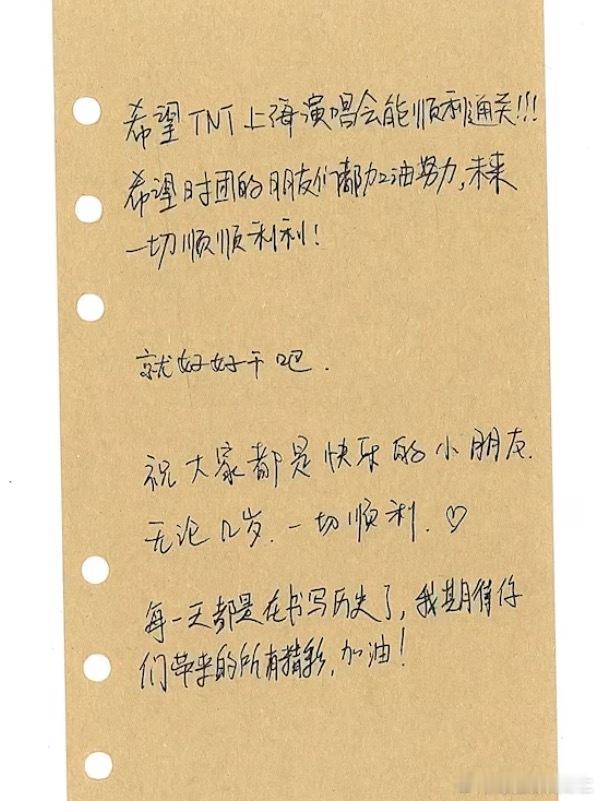 希望TNT上海演唱会能顺利通关!!!
希望时团的朋友们都加油努力,未来
一切顺顺利利!
就好好干吧.
祝大家都是快乐的小朋友.
无论几岁.一切顺利.♡
每一天都是在书写历史了,我期待你
们带来的所有精彩,加油!